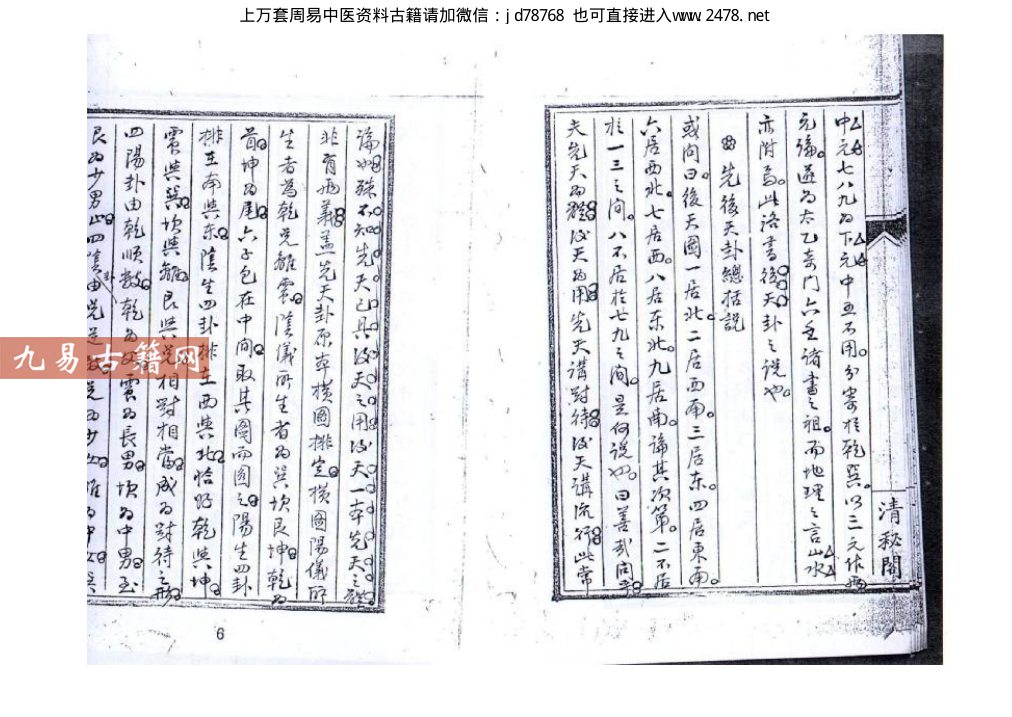 上万套周易中医资料古籍请加微信：jd78768 也可直接进入www.2478.net
中元七八九為下元中五不用分寄於乾巽以三元作
元論遂為太乙奇門六壬諸書之祖而地理之言山水
亦附焉此洛書後天卦之說也
先後天卦總括說
或問曰後天圖一居北二居西南三居東四居東南
六居西北七居西八居東北九居南論其次第二不居
於一三之间八不居於七九之间是何說也曰善哉问乎
夫先天為體後天為用先天講對待後天講流行此常
論也殊不知先天已具後天之用後天一本先天之體
非有两義盖先天卦原本橫圖排定橫圖陽儀所
生者為乾兑離震陰儀所生者為巽坎艮坤乾为
首坤为尾六子包在中间取其圖而圆之陽生四卦
排在南與东陰生四卦排在西與北恰好乾與坤
震與巽坎與離艮與兑相對相當成为對待之形
四陽卦由乾順數乾为父震为長男坎为中男至
艮为少男止四陰卦由兑逆数兑为少女離为中女巽
清秘閣
九易古籍网
6